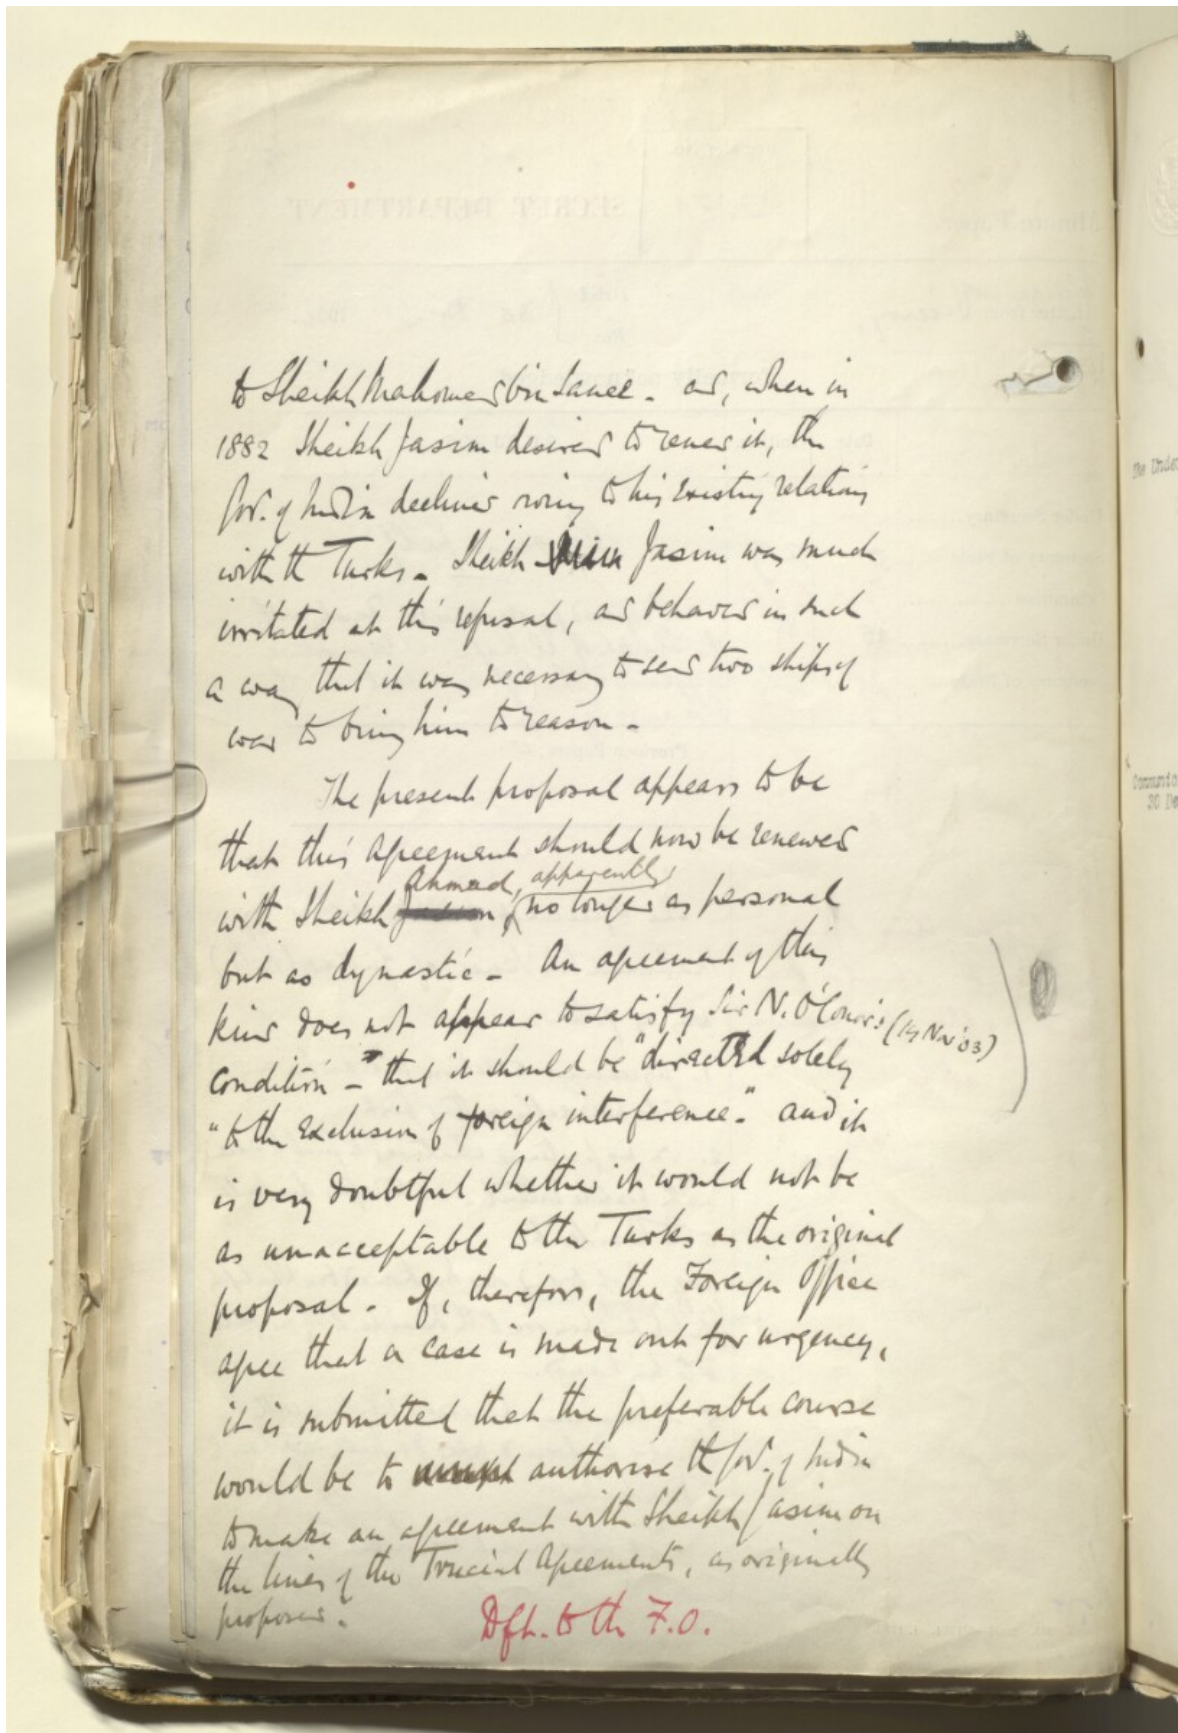 to Sheikh Mahomed bin Sanee - and, when in
1882 Sheikh Jasim desired to renew it, the
Gov. of India declined owing to his existing relations
with the Turks - Sheikh Jasim was much
irritated at this refusal, and behaved in such
a way that it was necessary to send two ships of
war to bring him to reason -
The present proposal appears to be
that this agreement should now be renewed
with Sheikh Ahmed, apparently no longer as personal
but as dynastic - An agreement of this
kind does not appear to satisfy Sir N. O'Conor's (14 Nov '03)
condition - that it should be "directed solely
"to the exclusion of foreign interference". and it
is very doubtful whether it would not be
as unacceptable to the Turks as the original
proposal. If, therefore, the Foreign Office
agree that a case is made out for urgency,
it is submitted that the preferable course
would be to authorise the Gov. of India
to make an agreement with Sheikh Jasim on
the lines of the Trucial Agreements, as originally
proposed.
Dft. to the F.O.
SECRET DEPARTMENT
The Under
30 De